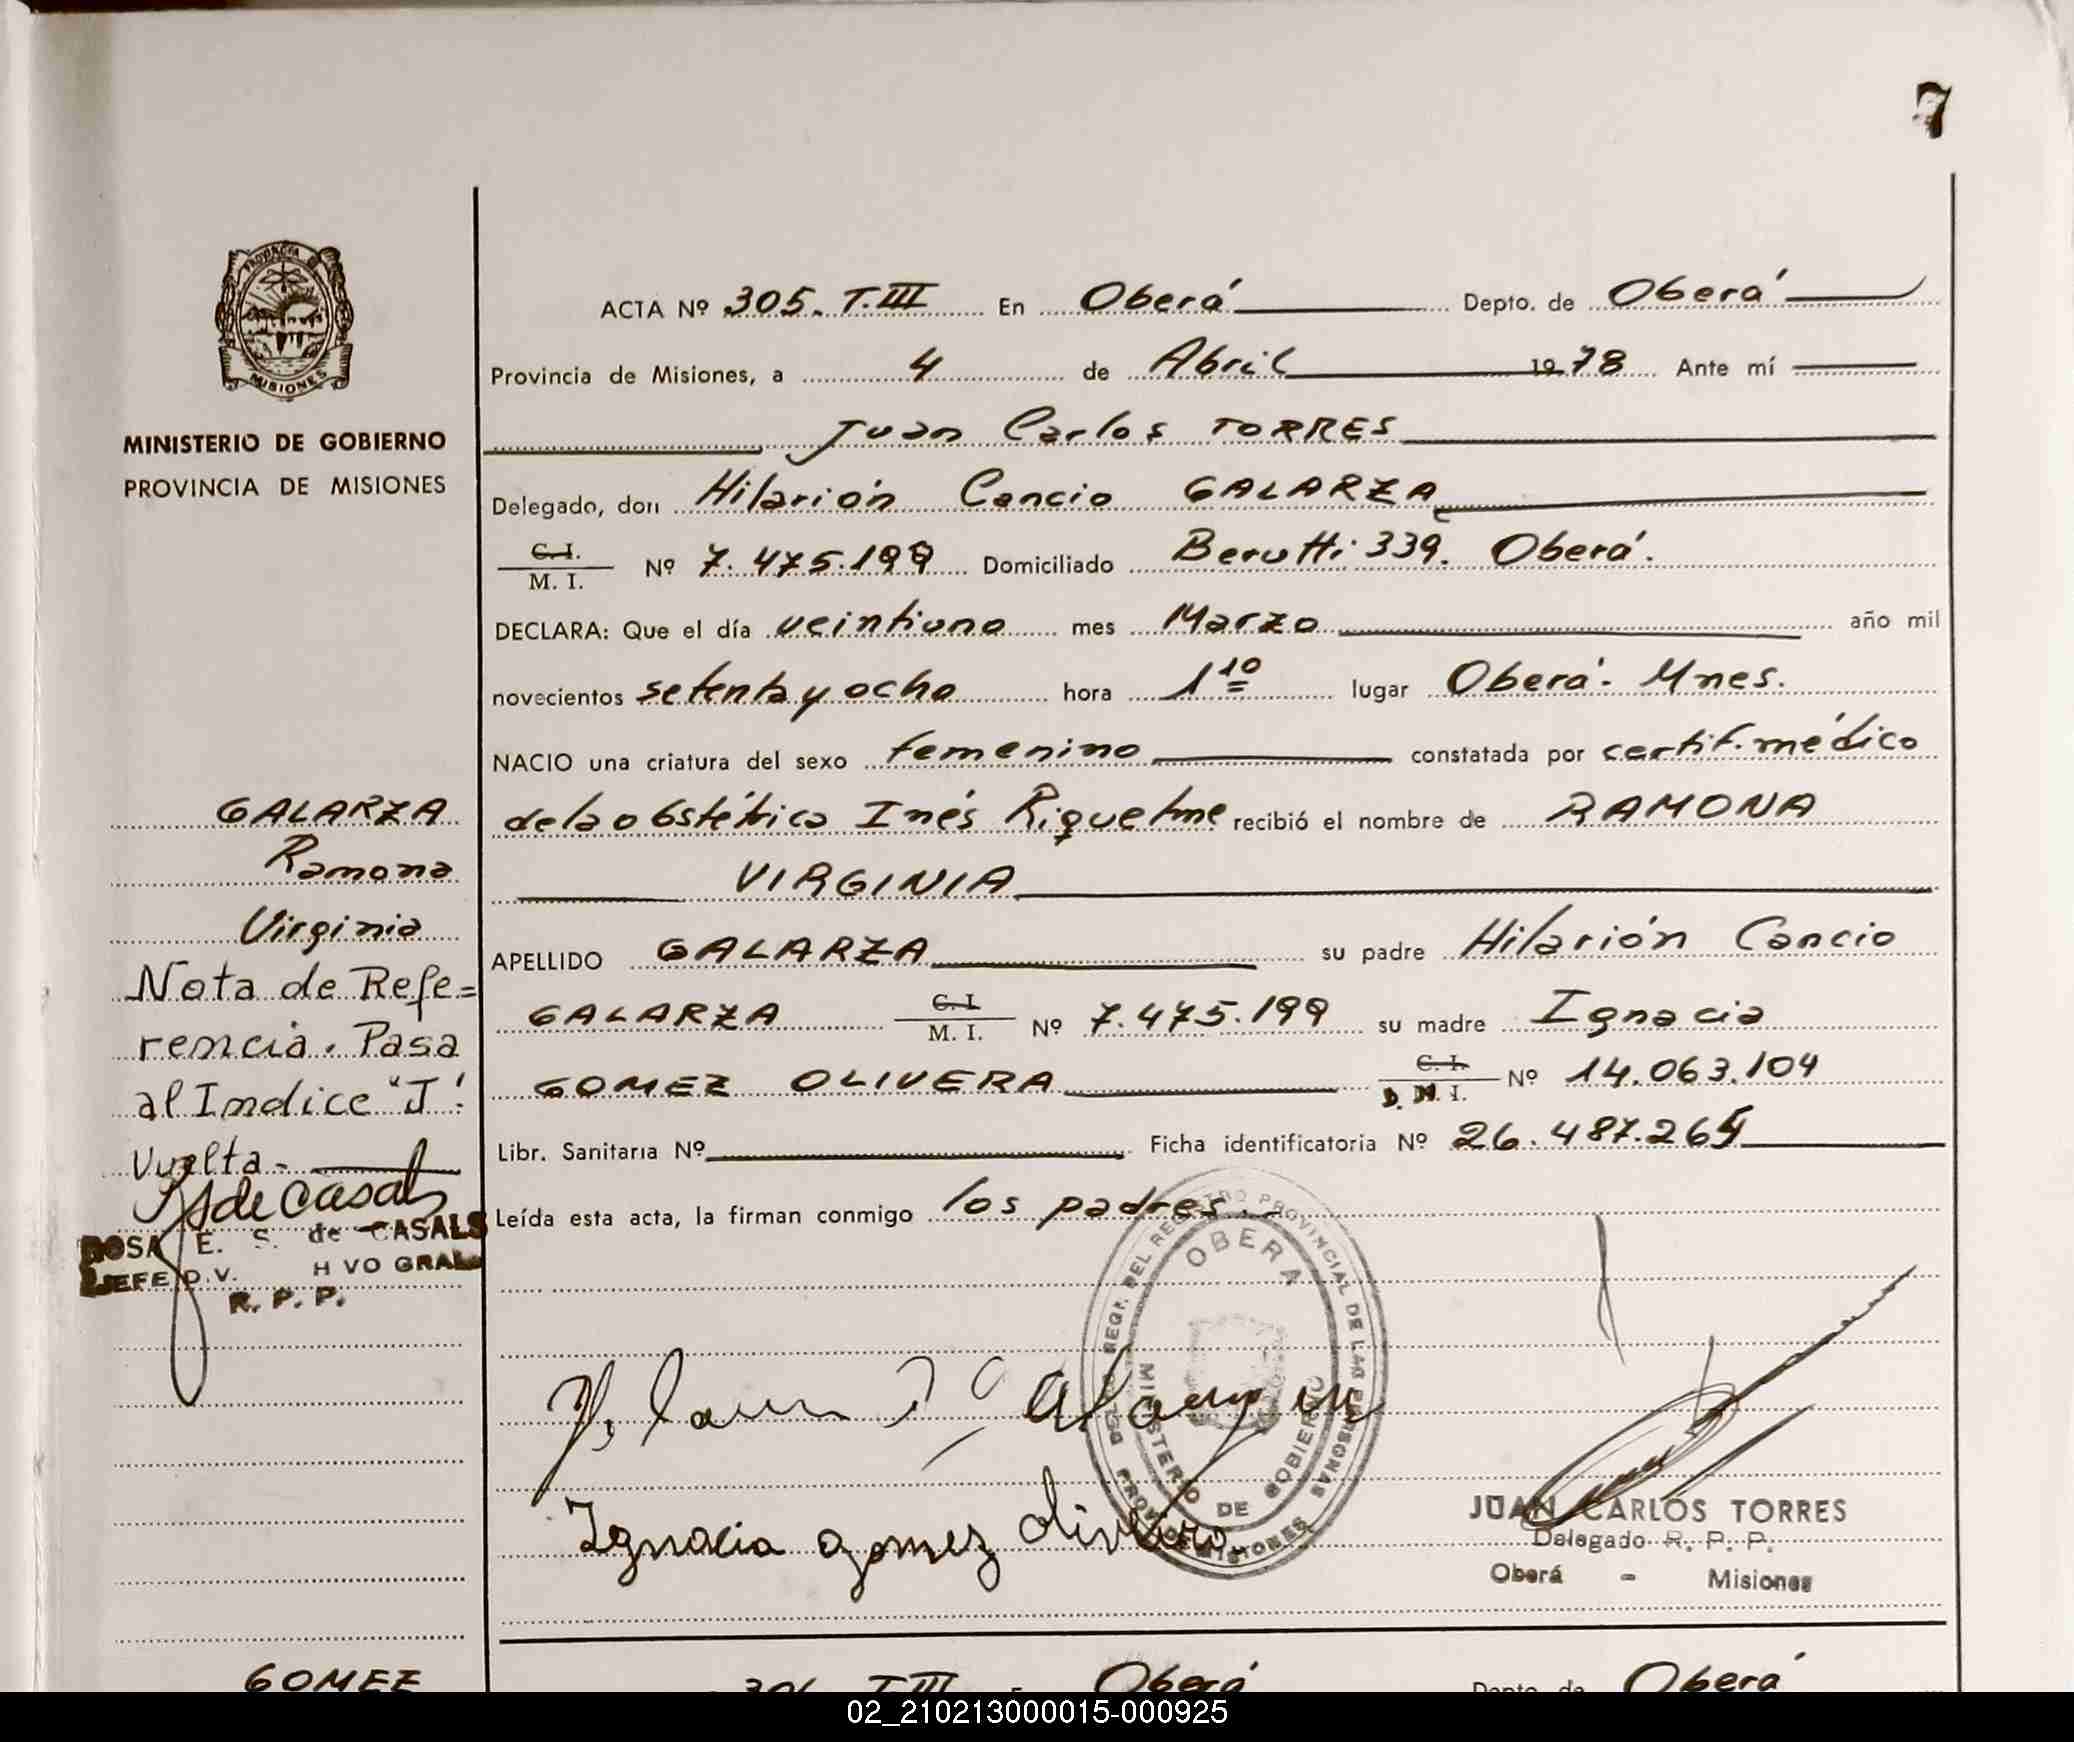 7
PROVINCIA
MISIONES
MINISTERIO DE GOBIERNO
PROVINCIA DE MISIONES
ACTA Nº 305. T.III En Oberá Depto. de Oberá
Provincia de Misiones, a 4 de Abril 1978 Ante mí
Juan Carlos TORRES
Delegado, don Hilarión Cancio GALARZA
C.I.
M. I. Nº 7.475.199 Domiciliado Berutti 339. Oberá.
DECLARA: Que el día veintiuno mes Marzo año mil
novecientos setenta y ocho hora 1 10 lugar Oberá- Mnes.
NACIO una criatura del sexo femenino constatada por certif. médico
de la obstétrica Inés Riquelme recibió el nombre de RAMONA
VIRGINIA
APELLIDO GALARZA su padre Hilarión Cancio
GALARZA C.I. M. I. Nº 7.475.199 su madre Ignacia
GOMEZ OLIVERA C.I. D.N.I. Nº 14.063.104
Libr. Sanitaria Nº Ficha identificatoria Nº 26.487.264
Leída esta acta, la firman conmigo los padres.-
GALARZA
Ramona
Virginia
Nota de Refe=
rencia. Pasa
al Indice "J".
Vuelta-
S de Casals
ROSA E. S. de CASALS
JEFE DIV. H VO GRAL
R. P. P.
OBERA
MINISTERIO DE GOBIERNO
Ignacia gomez Olivera
JUAN CARLOS TORRES
Delegado R. P. P.
Oberá - Misiones
GOMEZ
306 T III En Oberá Depto. de Oberá
02_210213000015-000925